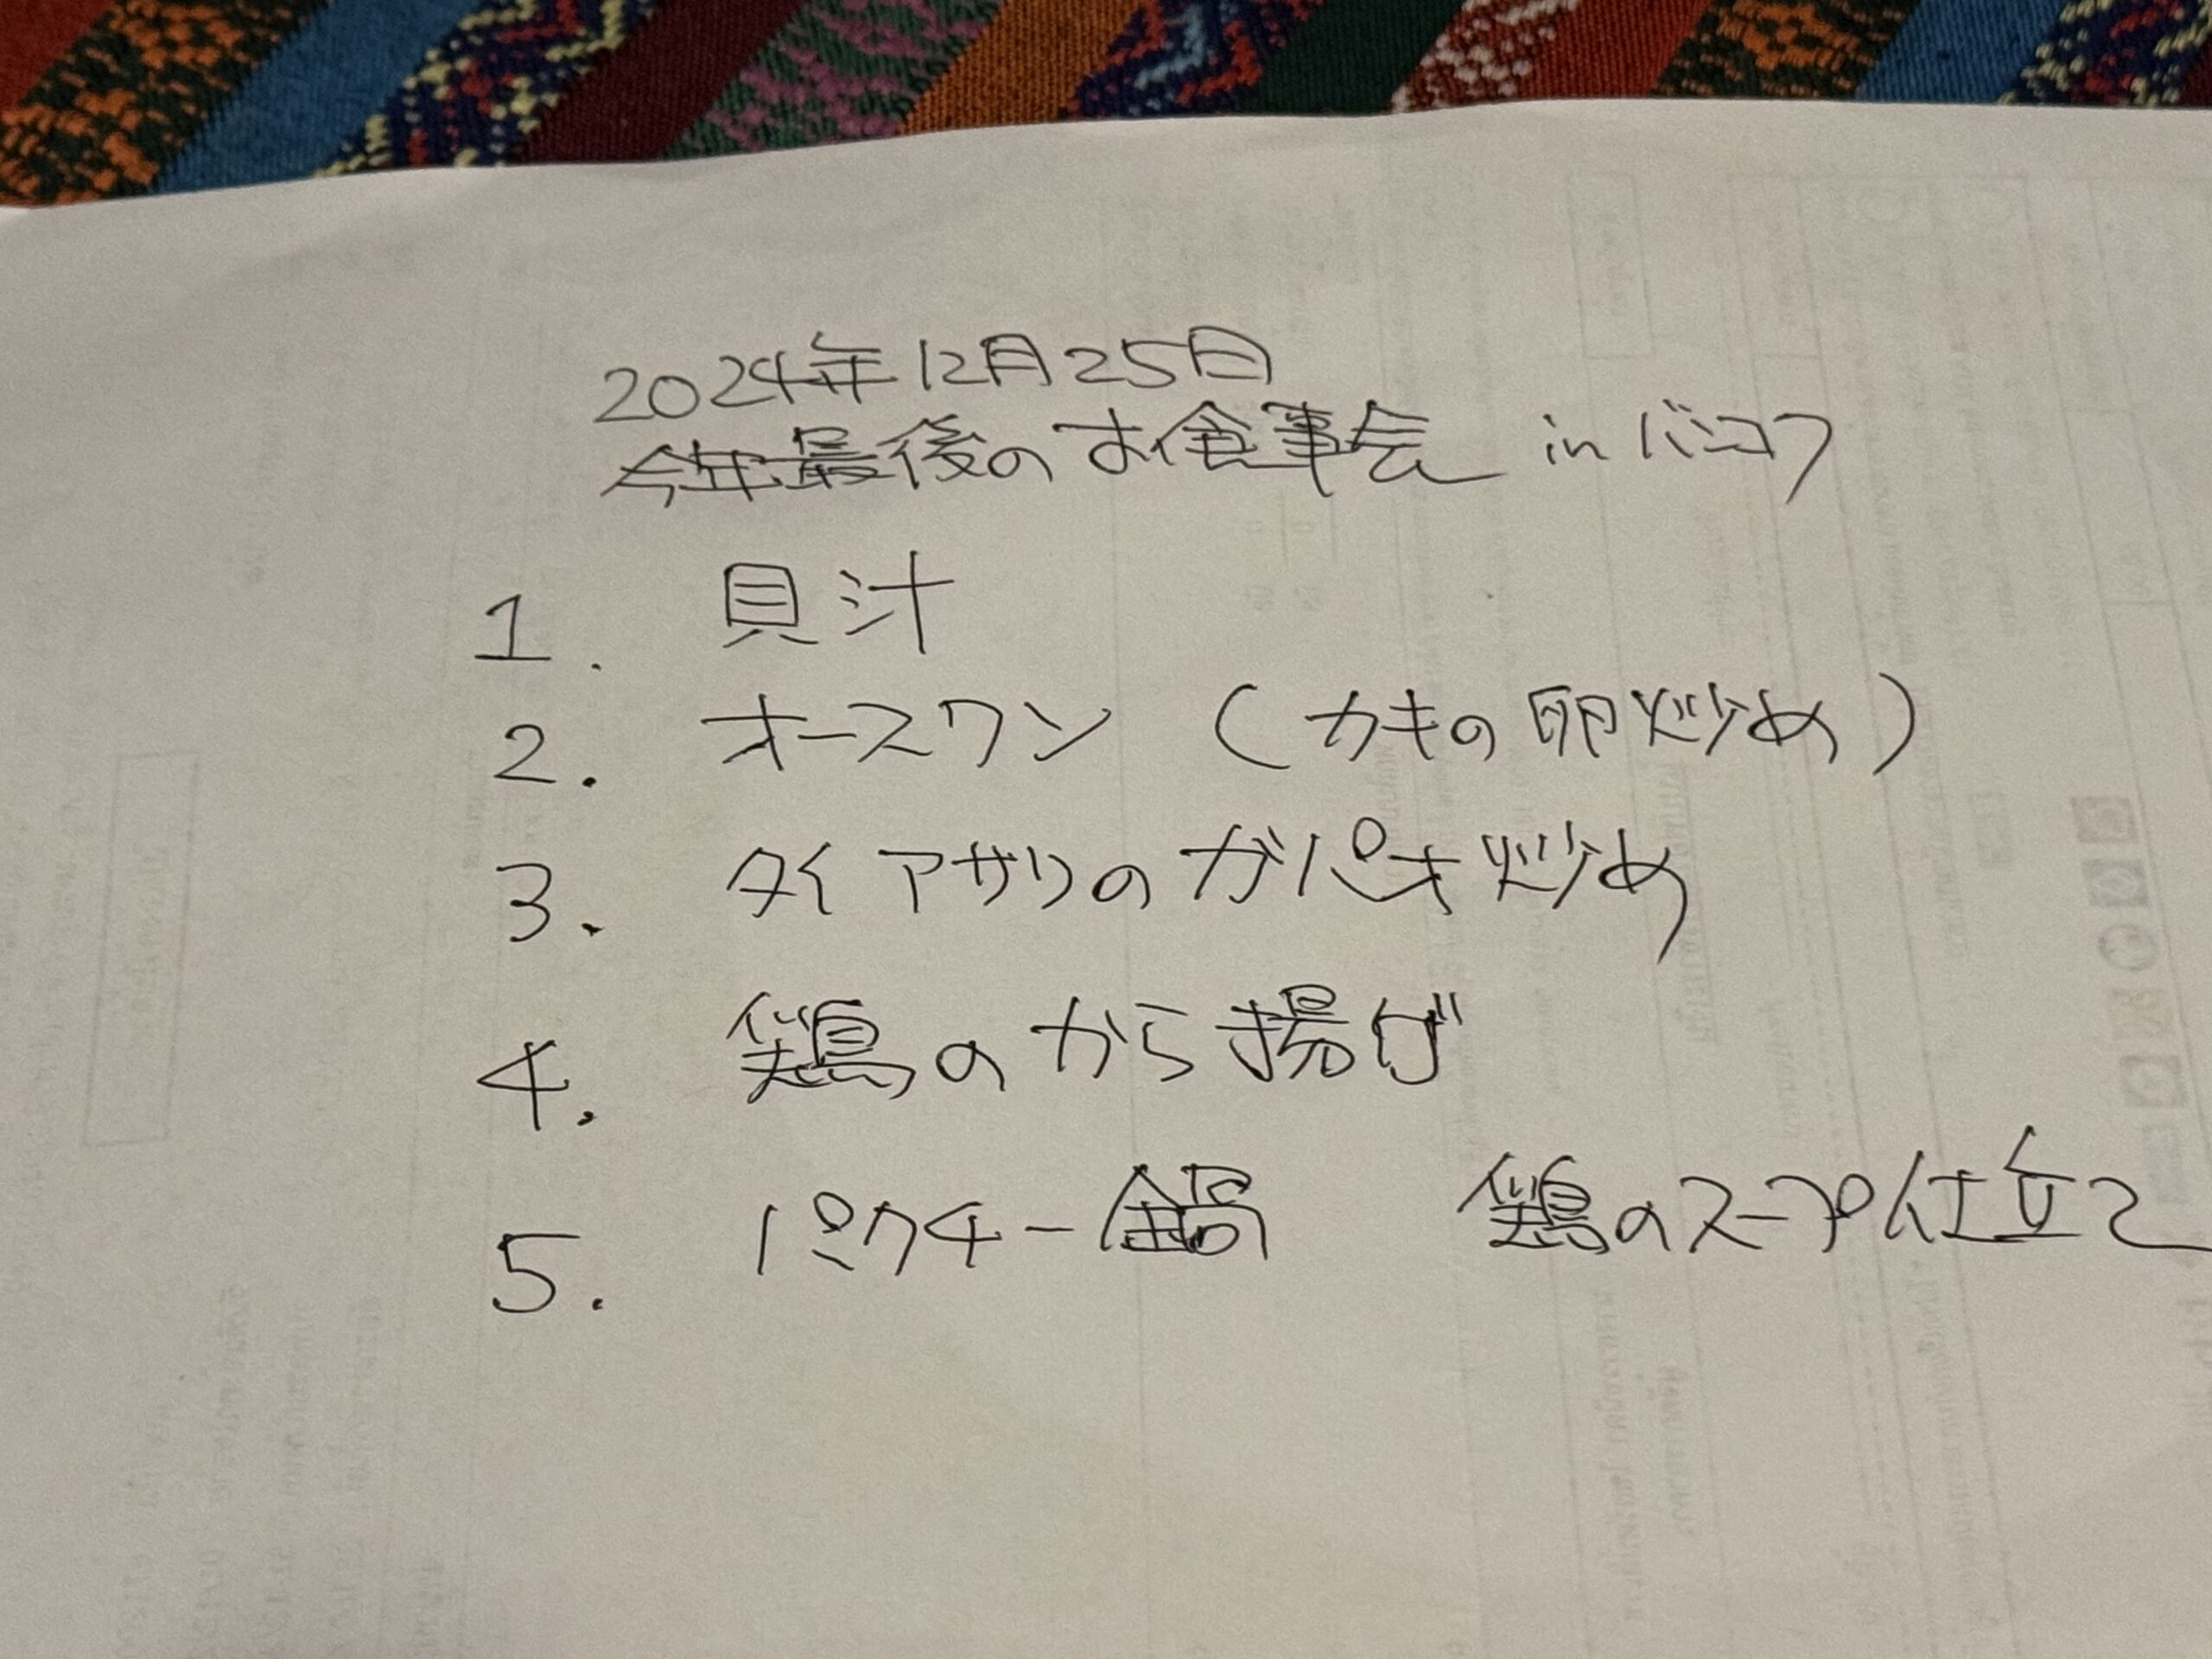 2024年12月25日
今年最後のお食事会 in バンコク
1. 貝汁
2. オースワン (カキの卵炒め)
3. タイアサリのガパオ炒め
4. 鶏のから揚げ
5. パクチー鍋 鶏のスープ仕立て